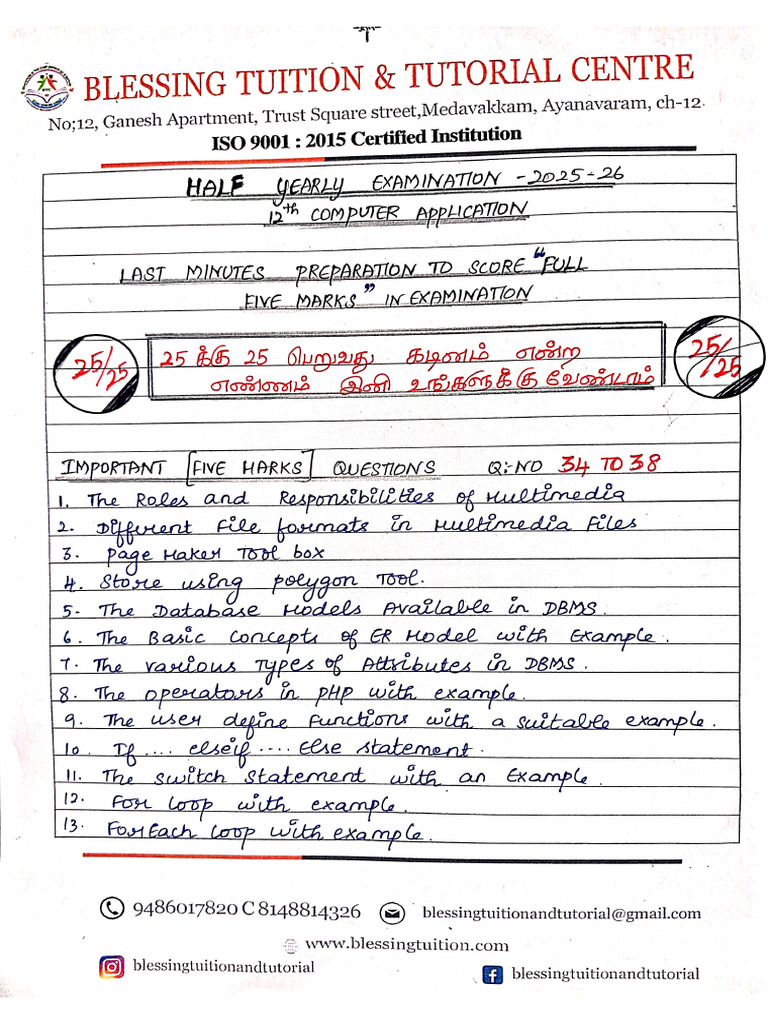 BLESSING TUITION & TUTORIAL CENTRE
No;12, Ganesh Apartment, Trust Square street,Medavakkam, Ayanavaram, ch-12.
ISO 9001 : 2015 Certified Institution
HALF YEARLY EXAMINATION - 2025-26
12th COMPUTER APPLICATION
LAST MINUTES PREPARATION TO SCORE "FULL
FIVE MARKS" IN EXAMINATION
25/25
25 க்கு 25 பெறுவது கடினம் என்ற
எண்ணம் இனி உங்களுக்கு வேண்டாம்
25/25
IMPORTANT [FIVE MARKS] QUESTIONS Q:-NO 34 TO 38
1. The Roles and Responsibilities of Multimedia
2. Different File formats in Multimedia Files
3. Page Maker Tool box
4. Store using polygon Tool.
5- The Database Models Available in DBMS.
6. The Basic Concepts of ER Model with Example.
7. The various Types of Attributes in DBMS.
8. The operators in PHP with example.
9. The user define Functions with a suitable example.
10. If .... elseif .... Else statement.
11. The Switch Statement with an Example.
12. For loop with example.
13. ForEach loop with example.
9486017820 C 8148814326 blessingtuitionandtutorial@gmail.com
www.blessingtuition.com
blessingtuitionandtutorial blessingtuitionandtutorial